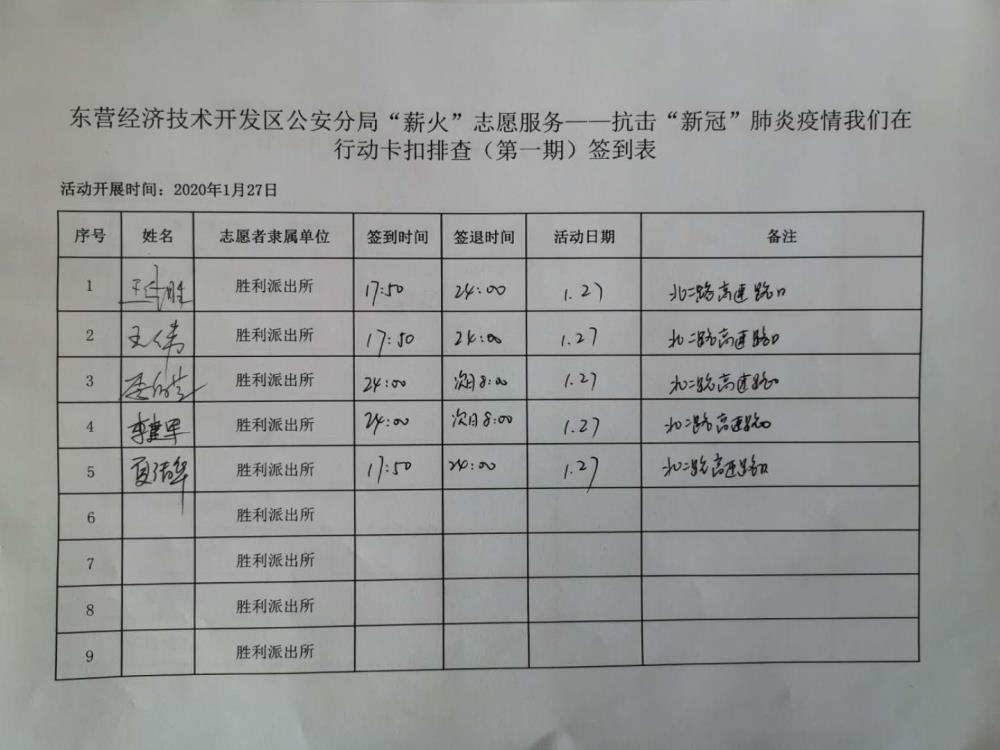 东营经济技术开发区公安分局“薪火”志愿服务——抗击“新冠”肺炎疫情我们在
行动卡扣排查（第一期）签到表
活动开展时间：2020年1月27日
序号 姓名 志愿者隶属单位 签到时间 签退时间 活动日期 备注
1 胜利派出所 17:50 24:00 1.27 北二路高速路口
2 王伟 胜利派出所 17:50 24:00 1.27 北二路高速路口
3 胜利派出所 24:00 次日8:00 1.27 北二路高速路口
4 李建军 胜利派出所 24:00 次日8:00 1.27 北二路高速路口
5 胜利派出所 17:50 24:00 1.27 北二路高速路口
6 胜利派出所
7 胜利派出所
8 胜利派出所
9 胜利派出所